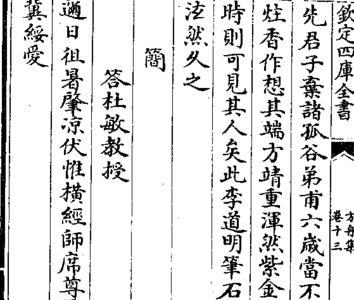 欽定四庫全書
方舟集
卷十三
先君子棄諸孤谷弟甫六歲當不
炷香作想其端方靖重渾然紫金
時則可見其人矣此李道明筆石
泫然久之
簡
答杜敏教授
邇日徂暑肇涼伏惟橫經師席尊
冀綏愛